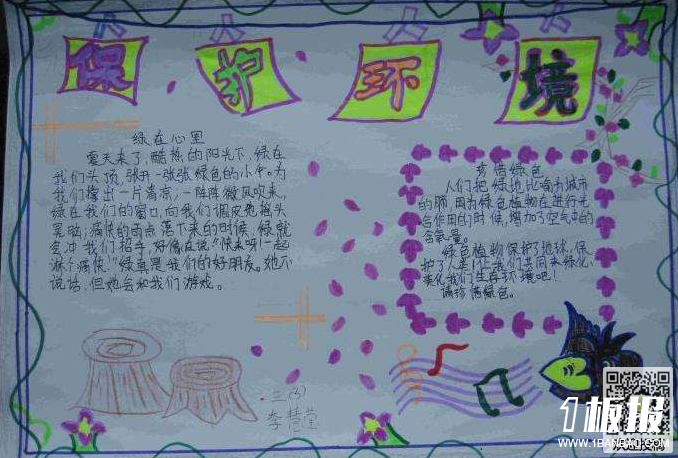 保护环境
绿在心里
夏天来了,酷热的阳光下,绿在
我们头顶,张开一张张绿色的小伞。为
我们撑出一片清凉,一阵阵微风吹来,
绿在我们的窗口,向我们调皮地摇头
晃脑;痛快的雨点落下来的时候,绿就
会冲我们招手,好像在说"快来呀!一起
淋个痛快"绿真是我们的好朋友。她不
说话,但她会和我们游戏。
珍惜绿色
人们把绿地比喻为城市
的肺,因为绿色植物在进行光
合作用的时候,增加了空气中的
含氧量。
绿色植物保护了地球,保
护了人类!让我们共同来绿化、
美化我们生存环境吧!
请珍惜绿色。
三(3)
李慧莹
1板报
WWW.1BANBAO.COM